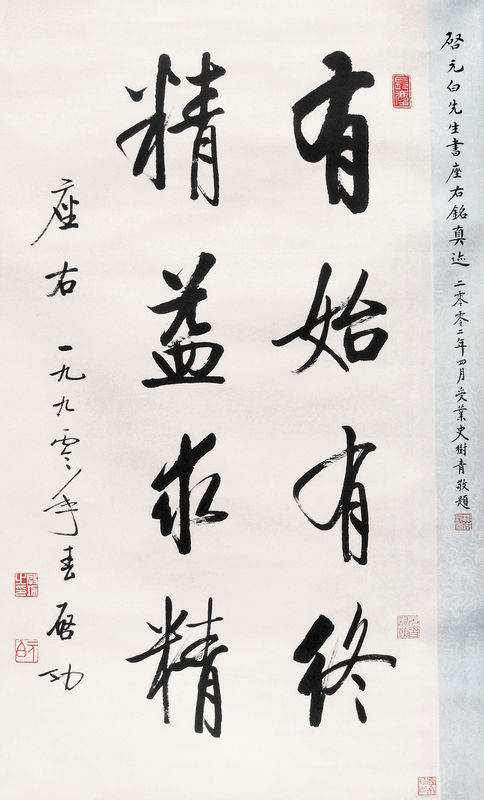 启元白先生書座右銘真迹 二零零二年四月受業史樹青敬題
有始有终
精益求精
座右 一九九零年春 启功